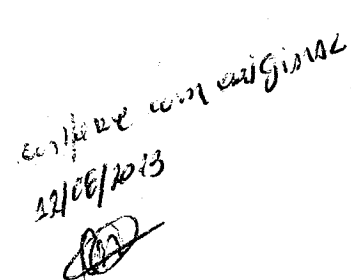 confere com original
12/08/2013